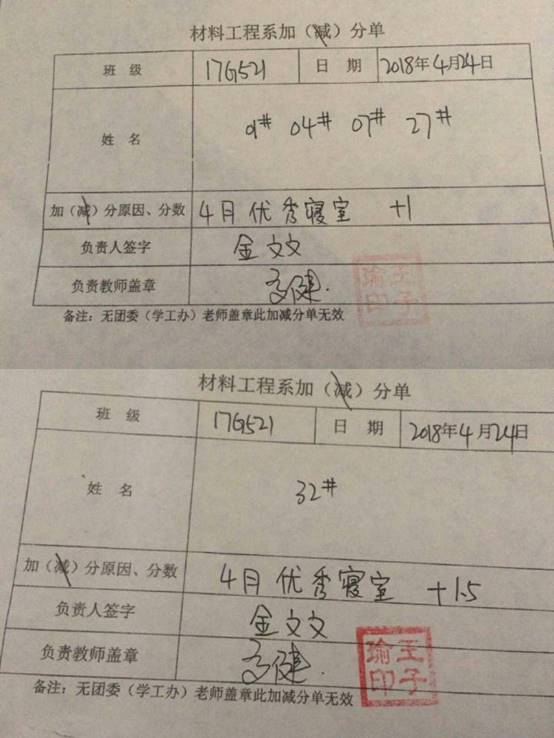 材料工程系加（减）分单
班 级 17G521 日 期 2018年4月24日
姓 名 01# 04# 07# 27#
加（减）分原因、分数 4月优秀寝室 +1
负责人签字 金文文
负责教师盖章 高健.
瑜王
印子
备注：无团委（学工办）老师盖章此加减分单无效
材料工程系加（减）分单
班 级 17G521 日 期 2018年4月24日
姓 名 32#
加（减）分原因、分数 4月优秀寝室 +1.5
负责人签字 金文文
负责教师盖章 高健.
瑜王
印子
备注：无团委（学工办）老师盖章此加减分单无效